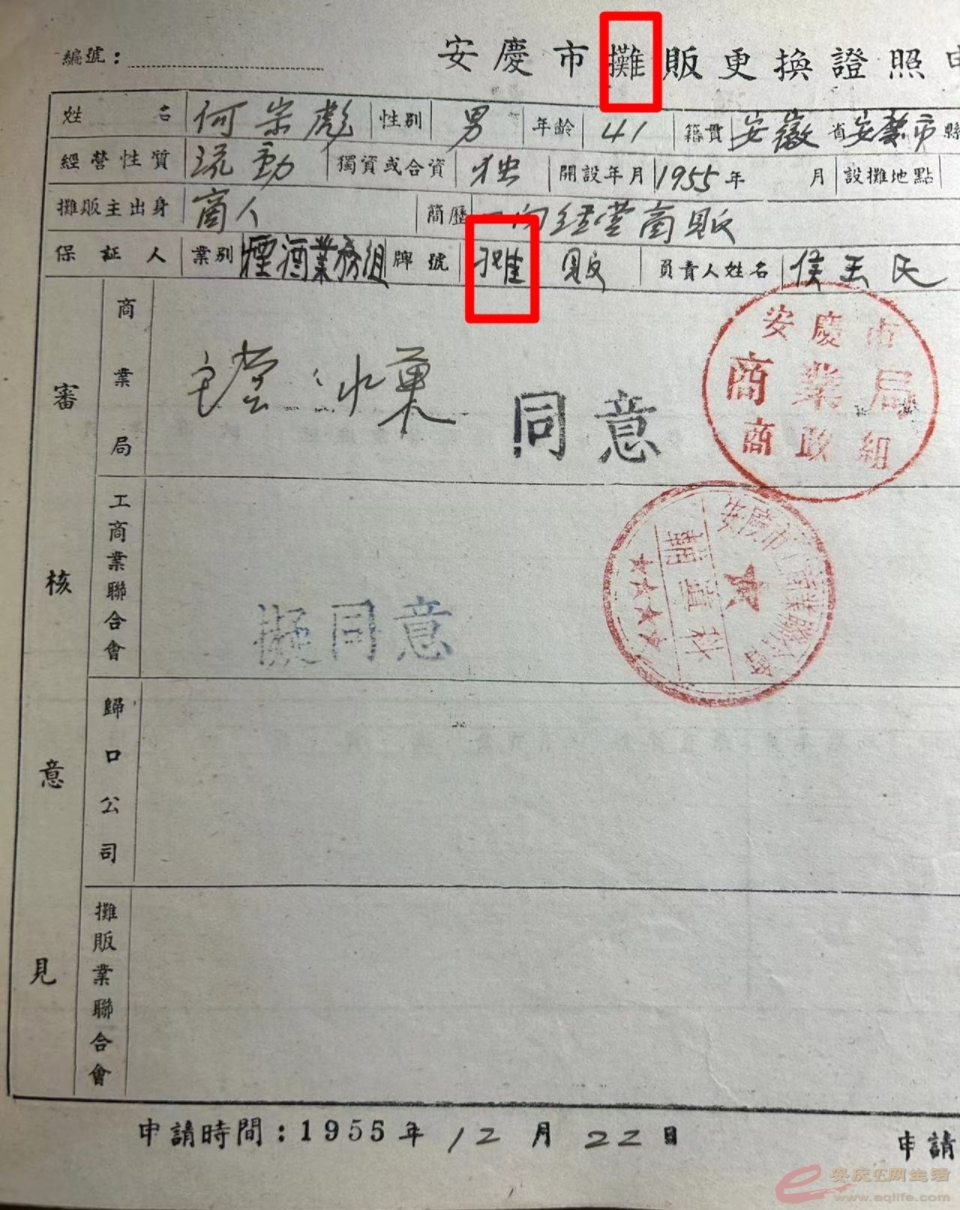 編號：
安慶市攤販更換證照申
姓名 何崇彪 性别 男 年齡 41 籍貫 安徽省安慶市縣
經營性質 流動 獨資或合資 独 開設年月 1955年 月 設攤地點
攤販主出身 商人 簡歷 一向經营商販
保証人 業别 煙酒業務組 牌號 摊販 負責人姓名 侯玉民
審核意見
商業局
主营：水菓
同意
安慶市
商業局
商政組
工商業聯合會
擬同意
安慶市工商業聯合會
歸口公司
攤販業聯合會
申請時間：1955年12月22日
申請
安庆E网生活
www.aqlife.com